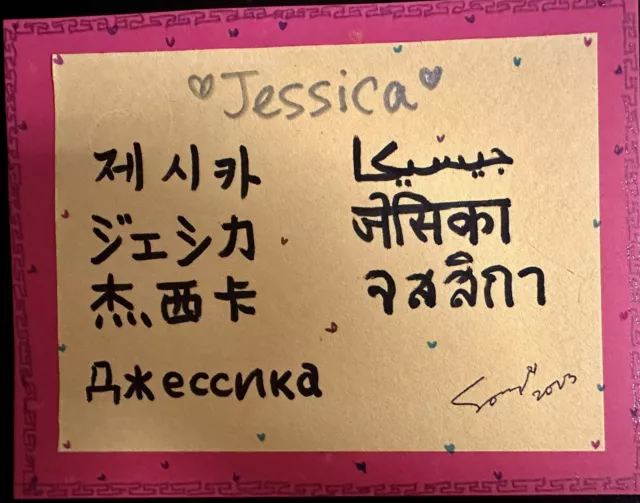 Jessica
제시카
ジェシカ
杰西卡
Джессика
جيسيكا
जेसिका
จสสิกา
2023